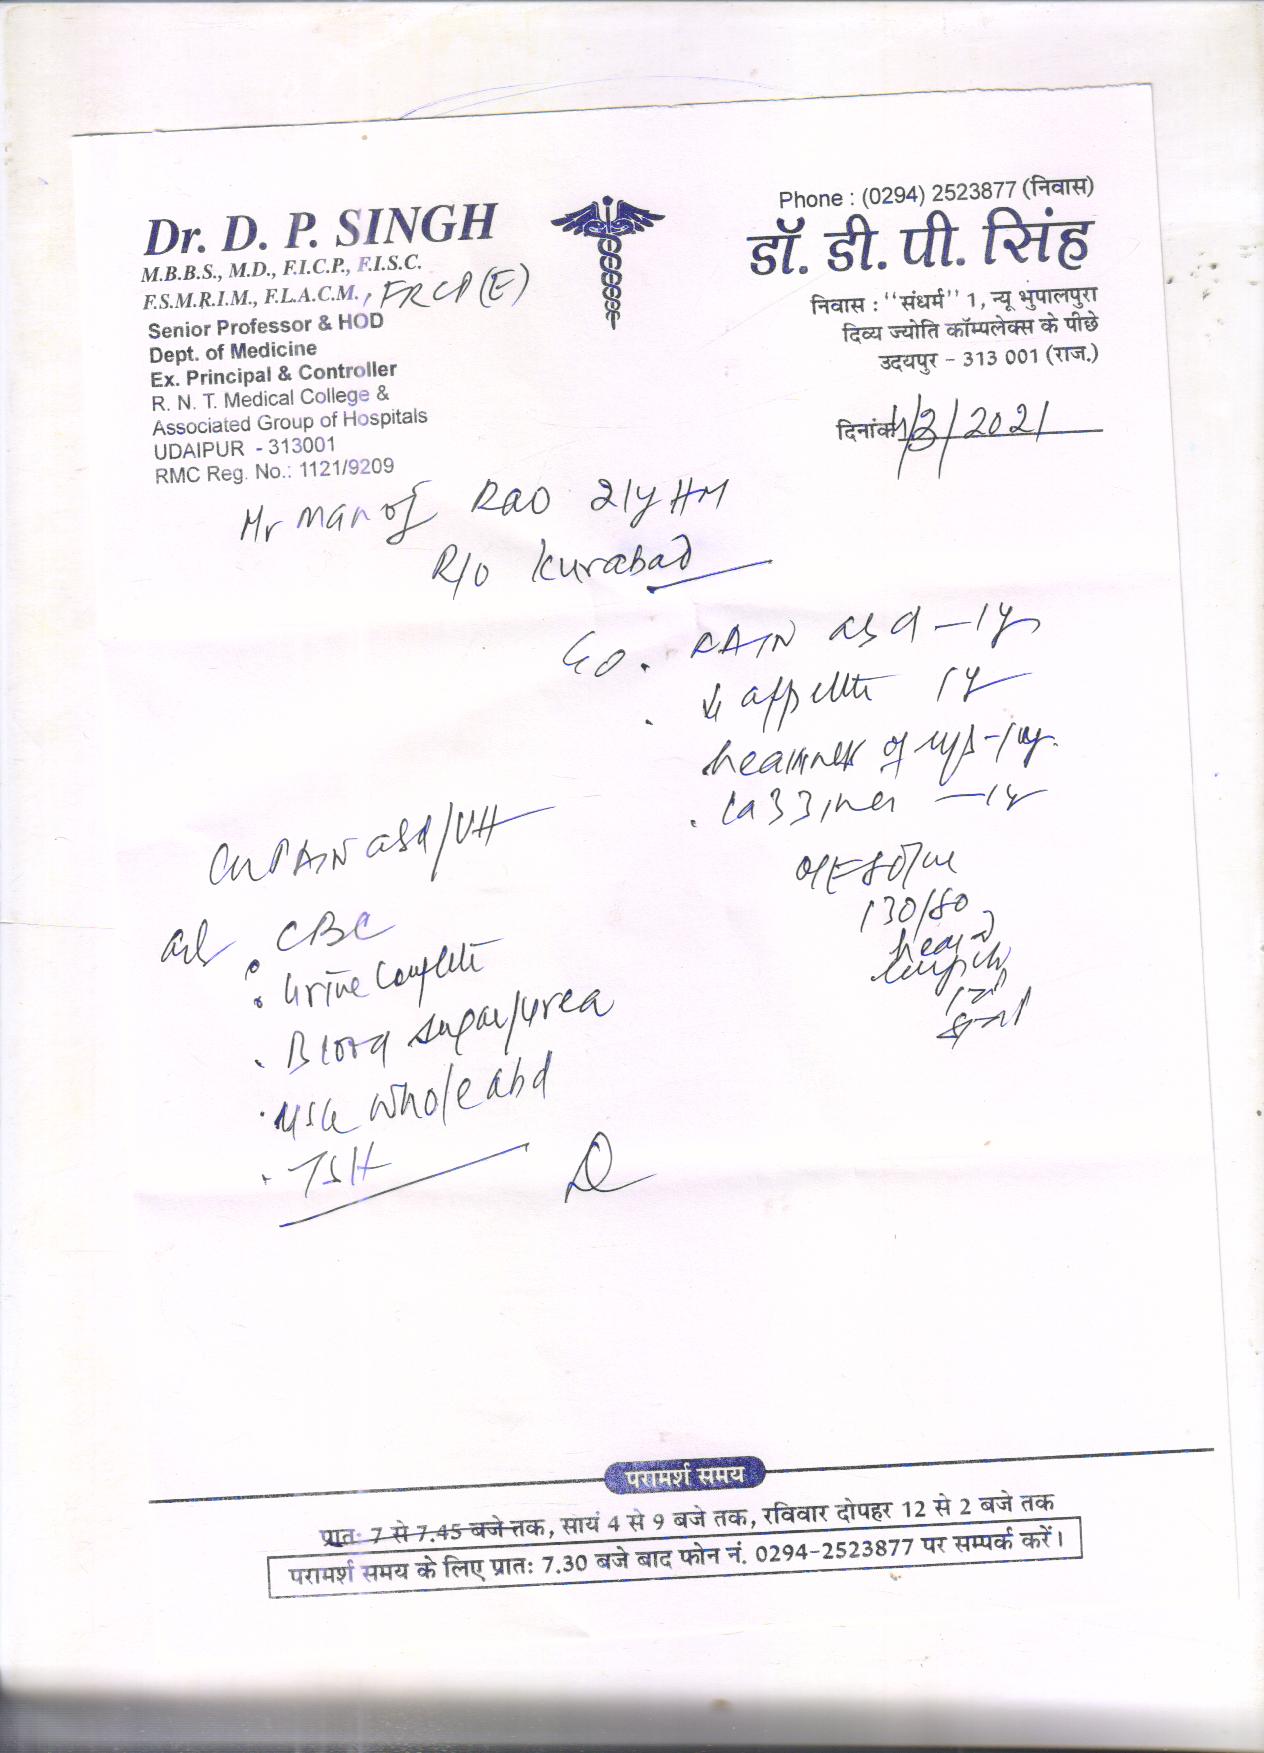 Phone : (0294) 2523877 (निवास)
Dr. D. P. SINGH
M.B.B.S., M.D., F.I.C.P., F.I.S.C.
F.S.M.R.I.M., F.L.A.C.M., FRCP(E)
Senior Professor & HOD
Dept. of Medicine
Ex. Principal & Controller
R. N. T. Medical College &
Associated Group of Hospitals
UDAIPUR - 313001
RMC Reg. No.: 1121/9209
डॉ. डी. पी. सिंह
निवास : "संधर्म" 1, न्यू भुपालपुरा
दिव्य ज्योति कॉम्पलेक्स के पीछे
उदयपुर - 313 001 (राज.)
दिनांक /3/2021
Mr Manoj Rao 21y HM
R/o Kurabad
C/o . PAIN abd - 1y
. ↓ appetite 1y
heaviness of - 1y
. Lazziness - 1y
O/E 80/m
130/80
PAIN abd/
Adv . CBC
. Urine Complete
. Blood sugar/urea
. USG Whole abd
. TSH
परामर्श समय
प्रातः 7 से 7.45 बजे तक, सायं 4 से 9 बजे तक, रविवार दोपहर 12 से 2 बजे तक
परामर्श समय के लिए प्रातः 7.30 बजे बाद फोन नं. 0294-2523877 पर सम्पर्क करें।